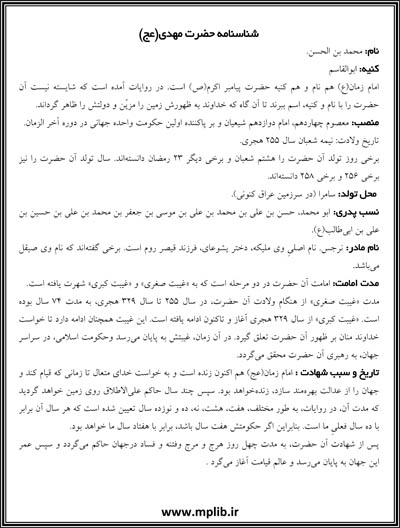 شناسنامه حضرت مهدی(عج)
نام: محمد بن الحسن.
کنیه: ابوالقاسم
امام زمان(ع) هم نام و هم کنیه حضرت پیامبر اکرم(ص) است. در روایات آمده است که شایسته نیست آن
حضرت را با نام و کنیه، اسم ببرند تا آن گاه که خداوند به ظهورش زمین را مزیّن و دولتش را ظاهر گرداند.
منصب: معصوم چهاردهم، امام دوازدهم شیعیان و بر پاکننده اولین حکومت واحده جهانی در دوره آخر الزمان.
تاریخ ولادت: نیمه شعبان سال ۲۵۵ هجری.
برخی روز تولد آن حضرت را هشتم شعبان و برخی دیگر ۲۳ رمضان دانسته‌اند. سال تولد آن حضرت را نیز
برخی ۲۵۶ و برخی ۲۵۸ دانسته‌اند.
محل تولد: سامرا (در سرزمین عراق کنونی).
نسب پدری: ابو محمد، حسن بن علی بن محمد بن علی بن موسی بن جعفر بن محمد بن علی بن حسین بن
علی بن ابی‌طالب(ع).
نام مادر: نرجس. نام اصلی وی ملیکه، دختر یشوعای، فرزند قیصر روم است. برخی گفته‌اند که نام وی صیقل
می‌باشد.
مدت امامت: امامت آن حضرت در دو مرحله است که به «غیبت صغری» و «غیبت کبری» شهرت یافته است.
مدت «غیبت صغری» از هنگام ولادت آن حضرت، در سال ۲۵۵ تا سال ۳۲۹ هجری، به مدت ۷۴ سال بوده
است. «غیبت کبری» از سال ۳۲۹ هجری آغاز و تاکنون ادامه یافته است. این غیبت همچنان ادامه دارد تا خواست
خداوند منان بر ظهور آن حضرت تعلق گیرد. در آن زمان، غیبتش به پایان می‌رسد وحکومت اسلامی، در سراسر
جهان، به رهبری آن حضرت محقق می‌گردد.
تاریخ و سبب شهادت : امام زمان(عج) هم اکنون زنده است و به خواست خدای متعال تا زمانی که قیام کند و
جهان را از عدالت بهره‌مند سازد، زنده‌خواهد بود. سپس چند سال حاکم علی‌الاطلاق روی زمین خواهد گردید
که مدت آن، در روایات، به طور مختلف، هفت، هشت، نه، ده و نوزده تعیین شده است که هر سال آن برابر
با ده سال فعلی ما است. بنابراین اگر حکومتش هفت سال باشد، برابر با هفتاد سال ما خواهد بود.
پس از شهادت آن حضرت، به مدت چهل روز هرج و مرج وفتنه و فساد درجهان حاکم می‌گردد و سپس عمر
این جهان به پایان می‌رسد و عالم قیامت آغاز می‌گرد .
www.mplib.ir